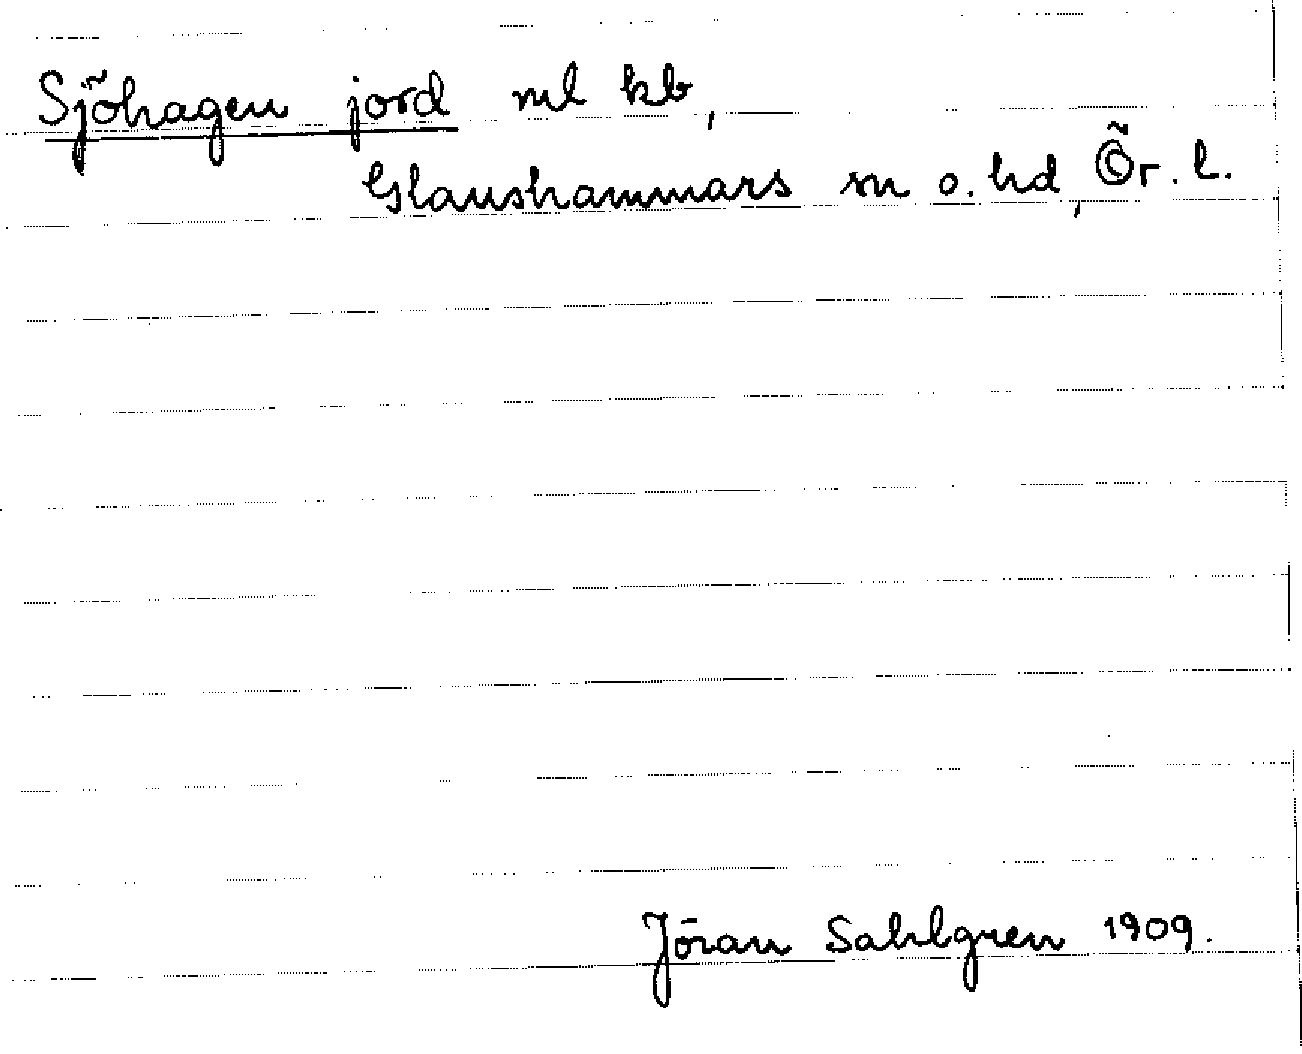 Sjöhagen jord ml kb,
Glanshammars sn o. hd, Ör. l.
Jöran Sahlgren 1909.